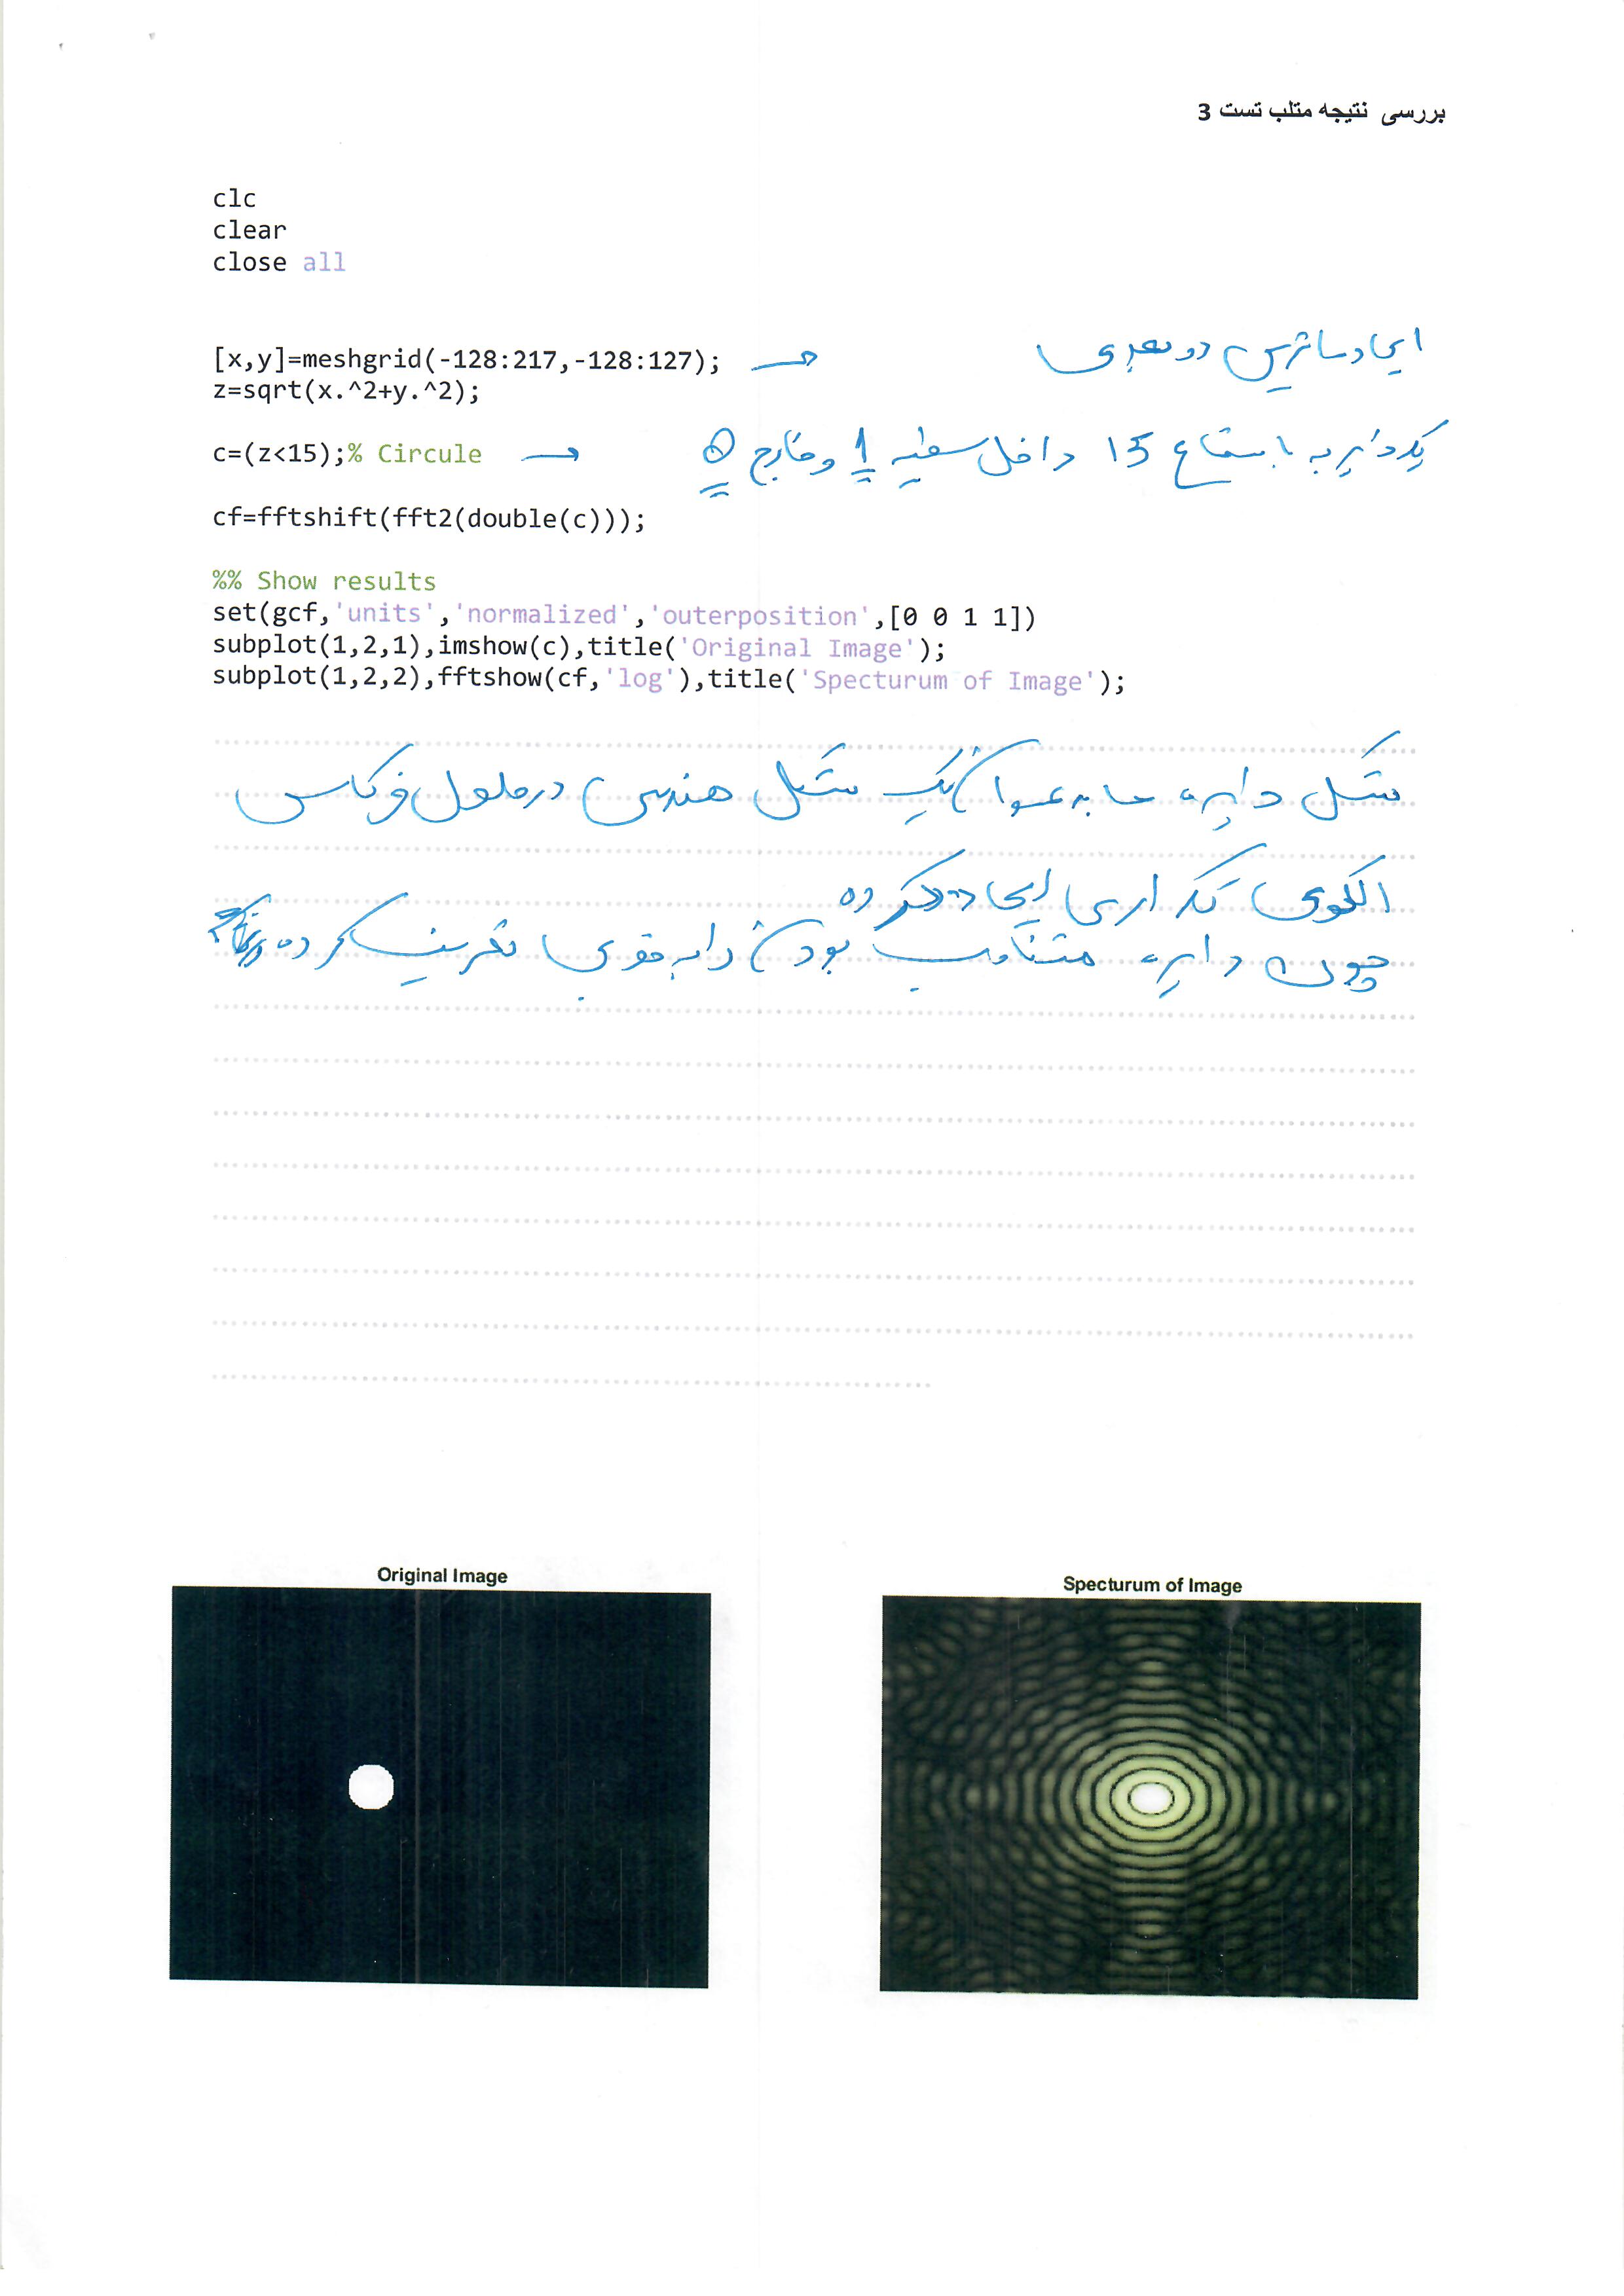 بررسی نتیجه متلب تست 3
clc
clear
close all
[x,y]=meshgrid(-128:217,-128:127); → ایجاد ماتریس دو بعدی
z=sqrt(x.^2+y.^2);
c=(z<15);% Circule → یک دایره به با شعاع 15 داخل سفید 1 و خارج 0
cf=fftshift(fft2(double(c)));
%% Show results
set(gcf,'units','normalized','outerposition',[0 0 1 1])
subplot(1,2,1),imshow(c),title('Original Image');
subplot(1,2,2),fftshow(cf,'log'),title('Specturum of Image');
شکل دایره ما به عنوان یک شکل هندسی در حلول فرکانس
الگوی تکراری ایجاد کرده
چون دایره متناوب بودن را به خوبی تعریف کرده
Original Image
Specturum of Image